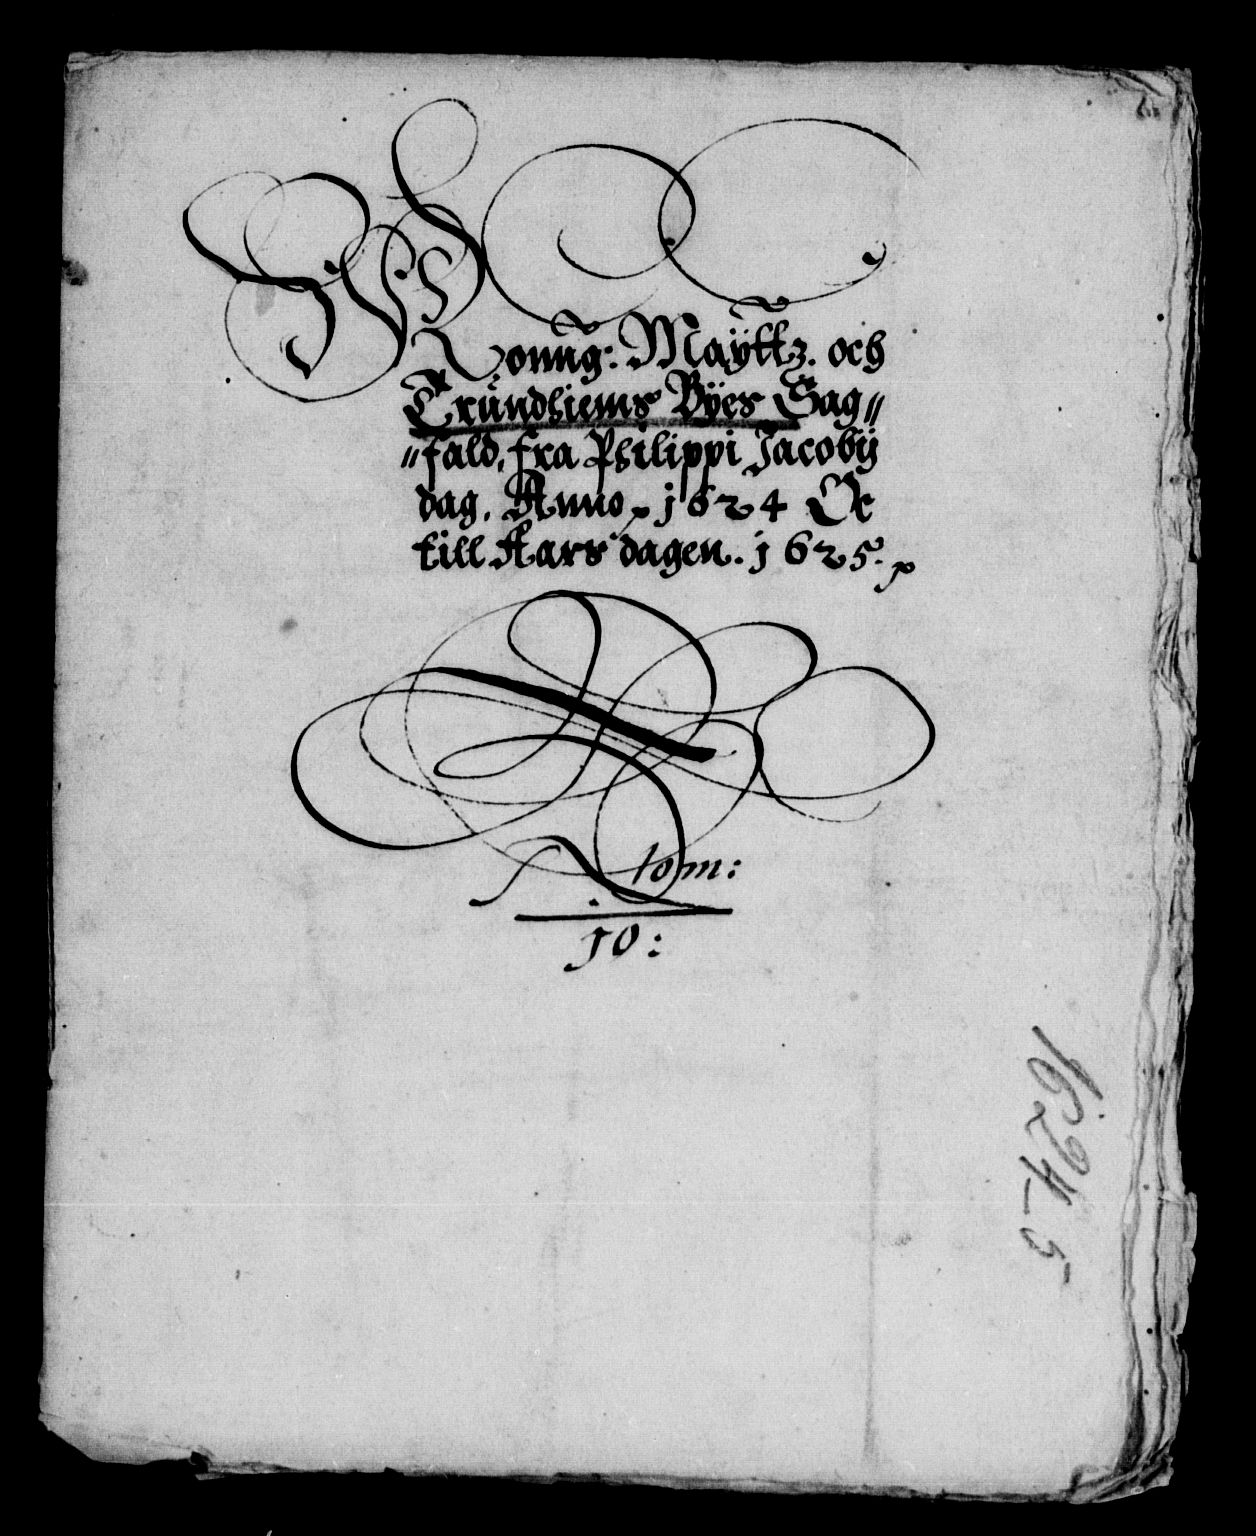 Konng: Maÿttz. och
Trundhiems Bÿes Sag//
//fald, fra Philippi Jacobij
dag, Anno. 1624 Oc
till Aars dagen. 1625.
tom:
10:
1624_5